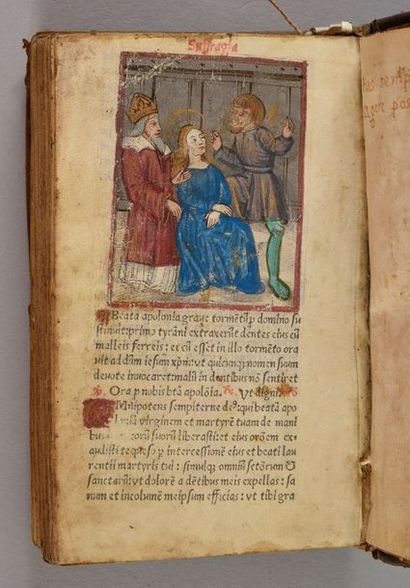 Suffragia
Beata apolonia graue tormētū p domino su
stinuit: primo tyrāni extraxerūt dentes eius cū
malleis ferreis: et cū esset in illo tormēto ora
uit ad dn̄m iesum xp̄m: vt quicūqȝ nomen suum
deuote inuocaret: malū in dentibus nō sentiret
℣. Ora p nobis btā apolōia. ℟. Vt digni
OMnipotens sempiterne deꝰ: qui beatā apo
loniā virginem et martyrē tuam de mani
bus suoꝝ liberasti: et eius orōem ex
audisti te p intercessionē eius et beati lau
rentii martyris tui: simulqȝ omniū sctōrum et
sanctarū: vt dolorē a dētibus meis expellas: sa
num et incolumē meipsum efficias: vt tibi gra